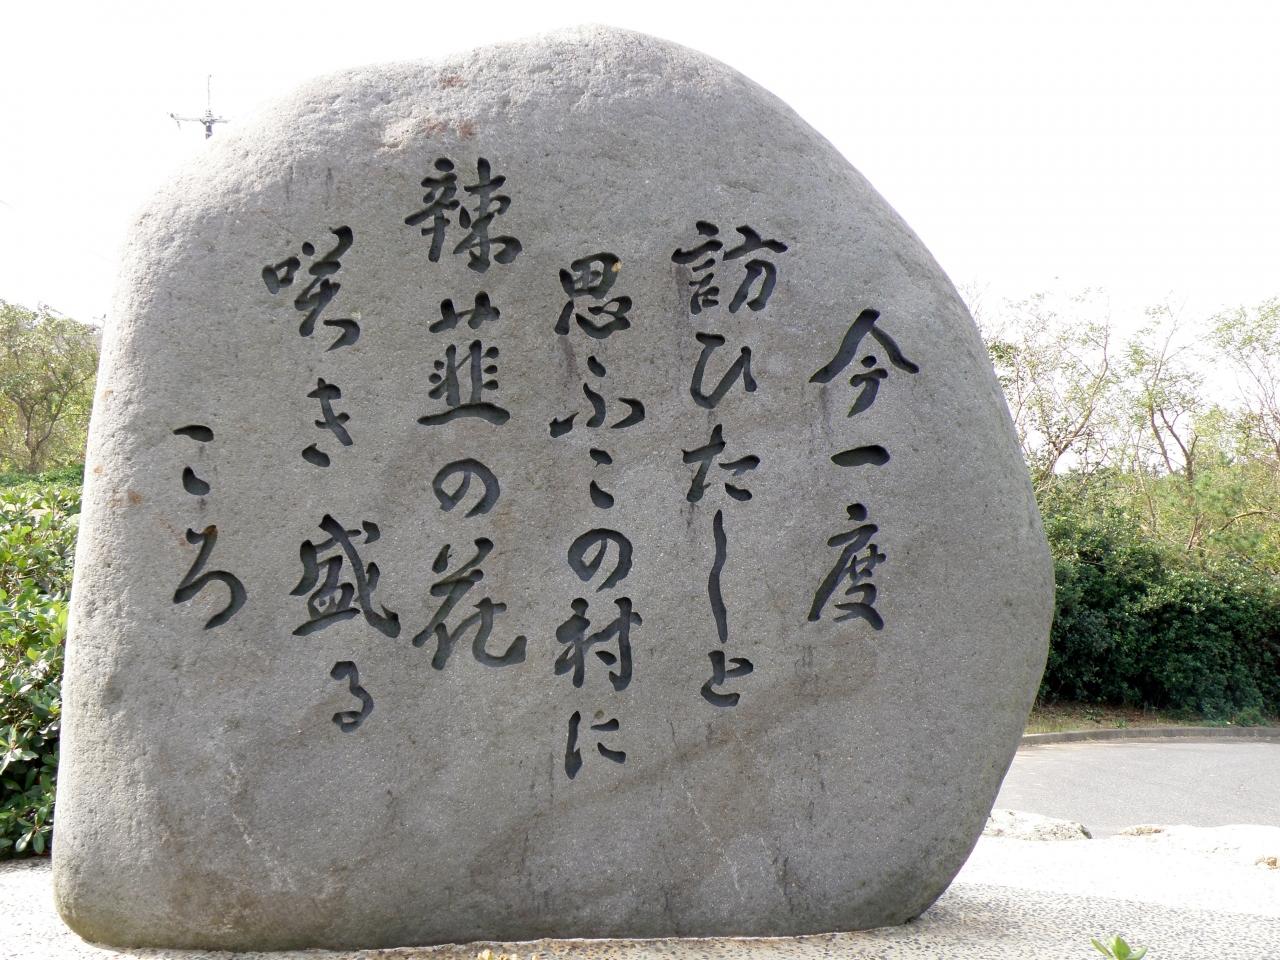 今一度
訪ひたしと
思ふこの村に
辣韮の花
咲き盛る
ころ